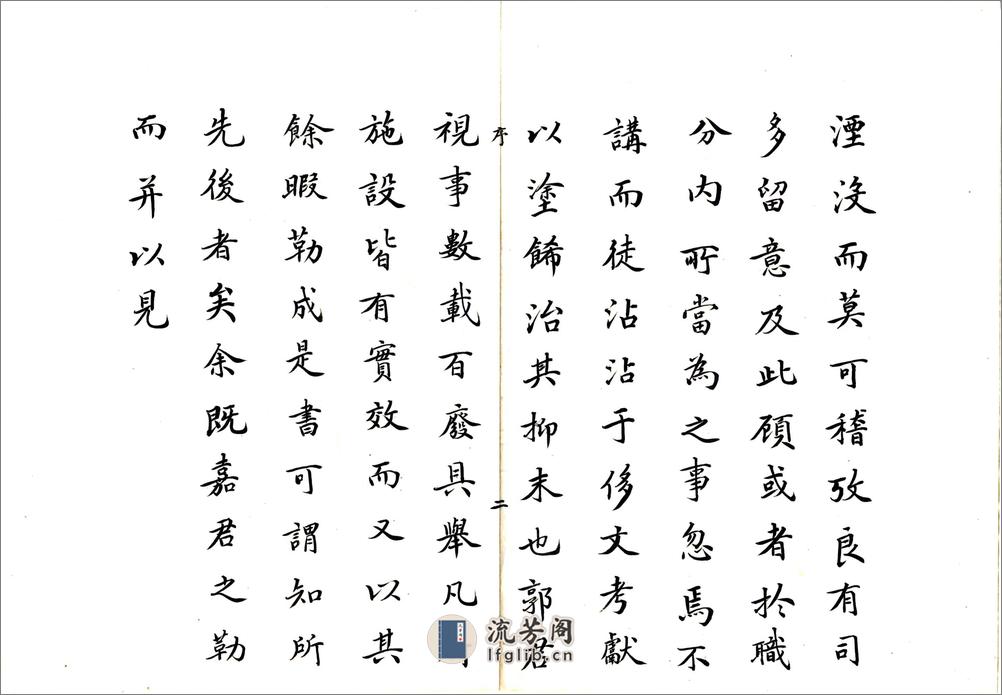 湮沒而莫可稽攷良有司
多留意及此顧或者於職
分内所當為之事忽焉不
講而徒沾沾于侈文考獻
以塗餙治其抑末也郭君
序
二
視事數載百廢具舉凡
施設皆有實效而又以其
餘暇勒成是書可謂知所
先後者矣余既嘉君之勒
而并以見
流芳阁
lfglib.cn